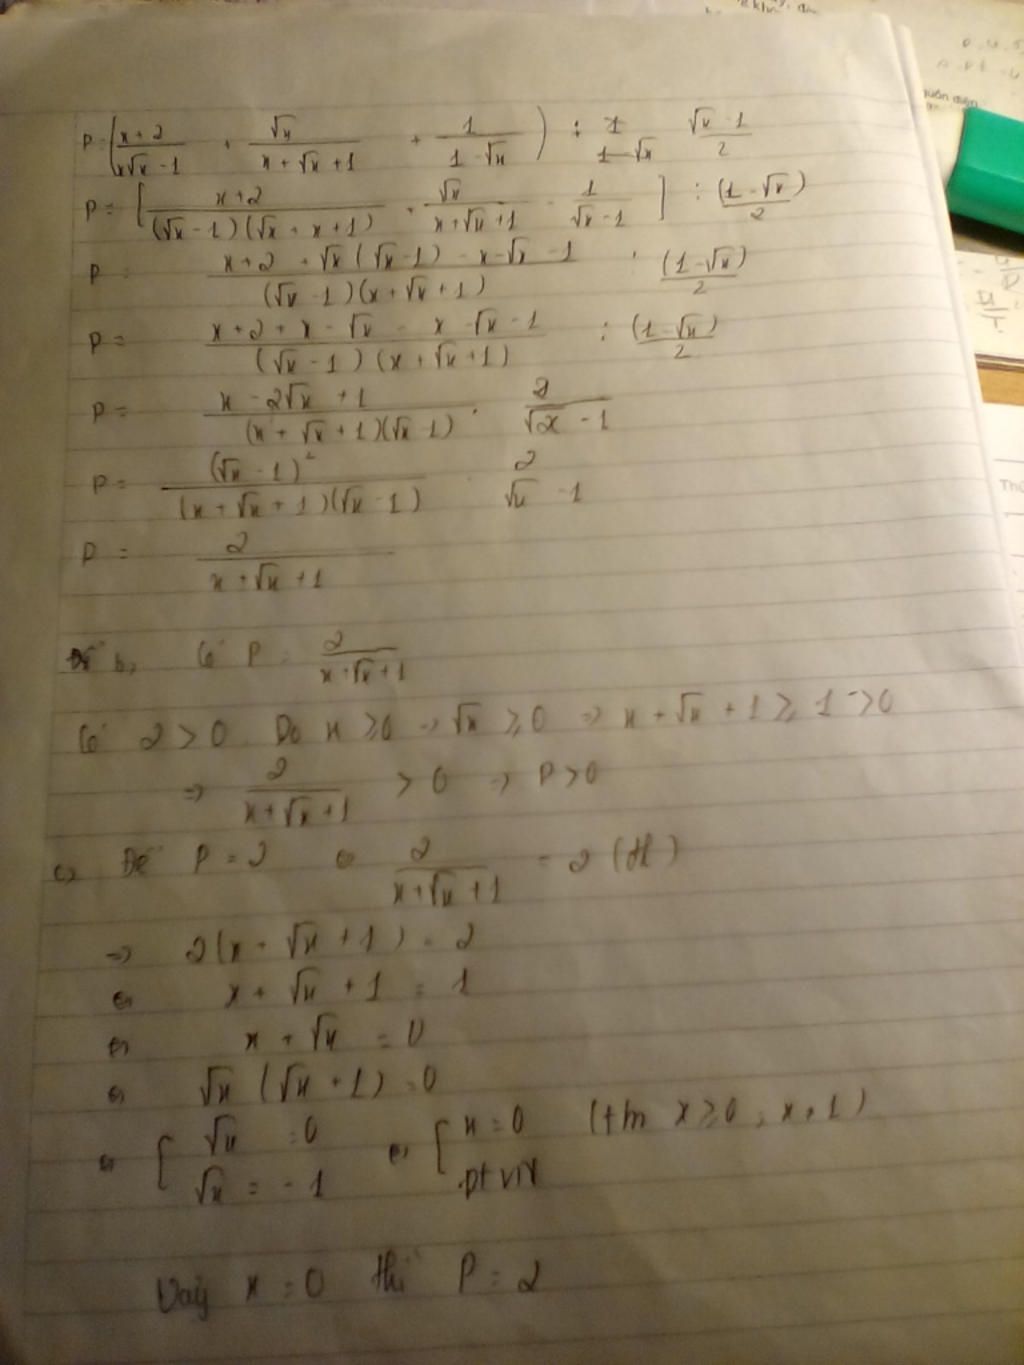 P = ( (x+2)/(x√x - 1) + √x/(x + √x + 1) + 1/(1 - √x) ) : (√x - 1)/2
P = [ (x+2)/((√x - 1)(√x + x + 1)) + √x/(x + √x + 1) - 1/(√x - 1) ] : (1 - √x)/2
P = (x + 2 + √x(√x - 1) - x - √x - 1)/((√x - 1)(x + √x + 1)) : (1 - √x)/2
P = (x + 2 + x - √x - x - √x - 1)/((√x - 1)(x + √x + 1)) : (1 - √x)/2
P = (x - 2√x + 1)/((x + √x + 1)(√x - 1)) . 2/(√x - 1)
P = (√x - 1)²/((x + √x + 1)(√x - 1)) . 2/(√x - 1)
P = 2/(x + √x + 1)
b, Có P = 2/(x + √x + 1)
Có 2 > 0. Do x ≥ 0 → √x ≥ 0 ⇒ x + √x + 1 ≥ 1 > 0
⇒ 2/(x + √x + 1) > 0 ⇒ P > 0
c, Để P = 2 ⇔ 2/(x + √x + 1) = 2 (đk)
⇒ 2(x + √x + 1) = 2
⇔ x + √x + 1 = 1
⇔ x + √x = 0
⇔ √x (√x + 1) = 0
⇔ [ √x = 0 ⇔ [ x = 0 (tm x ≥ 0, x ≠ 1)
√x = -1 pt vn
Vậy x = 0 thì P = 2